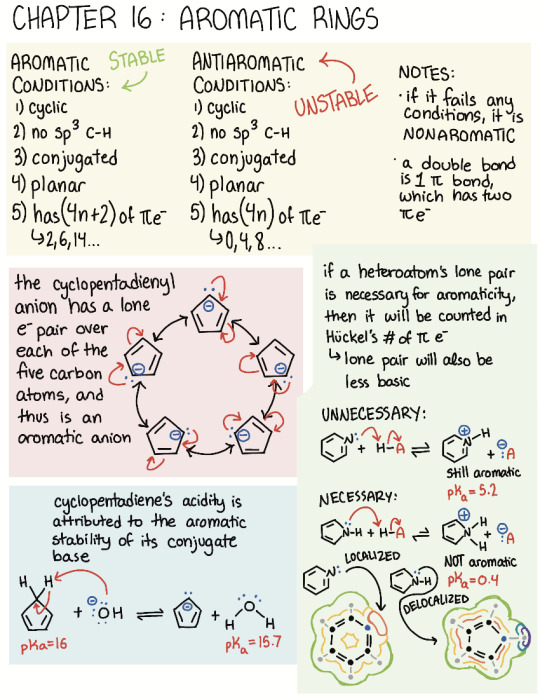 CHAPTER 16: AROMATIC RINGS
AROMATIC
CONDITIONS:
STABLE
1) cyclic
2) no sp³ C-H
3) conjugated
4) planar
5) has (4n+2) of πe⁻
↳2,6,14...
ANTIAROMATIC
CONDITIONS:
UNSTABLE
1) cyclic
2) no sp³ C-H
3) conjugated
4) planar
5) has (4n) of πe⁻
↳0,4,8...
NOTES:
· if it fails any
conditions, it is
NONAROMATIC
· a double bond
is 1 π bond,
which has two
πe⁻
the cyclopentadienyl
anion has a lone
e⁻ pair over
each of the
five carbon
atoms, and
thus is an
aromatic anion
cyclopentadiene's acidity is
attributed to the aromatic
stability of its conjugate
base
H H
+ ⊖ :ÖH ⇌ ⊖ + H O H
pKa=16
pKa=15.7
if a heteroatom's lone pair
is necessary for aromaticity,
then it will be counted in
Hückel's # of π e⁻
↳ lone pair will also be
less basic
UNNECESSARY:
N: + H-A ⇌ ⊕ N-H + ⊖ :A
still aromatic
pKa=5.2
NECESSARY:
N-H + H-A ⇌ ⊕ N H H + ⊖ :A
NOT aromatic
pKa=0.4
LOCALIZED
N:
N-H
DELOCALIZED